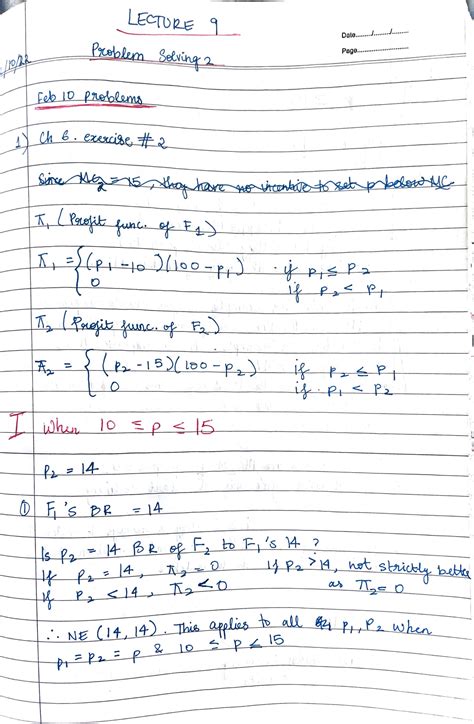 LECTURE 9
Date......./......./.......
Page..............................
Problem Solving 2
/10/22
Feb 10 problems
1) Ch 6. exercise # 2
Since MC₂ = 15, they have no incentive to set p below MC
π₁ (Profit func. of F₁)
π₁ = { (p₁ - 10)(100 - p₁) if p₁ ≤ p₂
0 if p₂ < p₁
π₂ (Profit func. of F₂)
π₂ = { (p₂ - 15)(100 - p₂) if p₂ ≤ p₁
0 if p₁ < p₂
I When 10 ≤ p ≤ 15
p₂ = 14
① F₁'s BR = 14
Is p₂ = 14 BR of F₂ to F₁'s 14 ?
If p₂ = 14, π₂ = 0 If p₂ > 14, not strictly better
If p₂ < 14, π₂ < 0 as π₂ = 0
∴ NE (14, 14). This applies to all p₁, p₂ when
p₁ = p₂ = p & 10 ≤ p ≤ 15